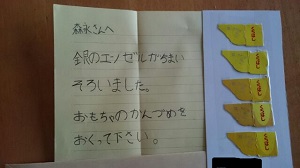 森永さんへ
銀のエンゼルが5まい
そろいました。
おもちゃのかんづめを
おくって下さい。